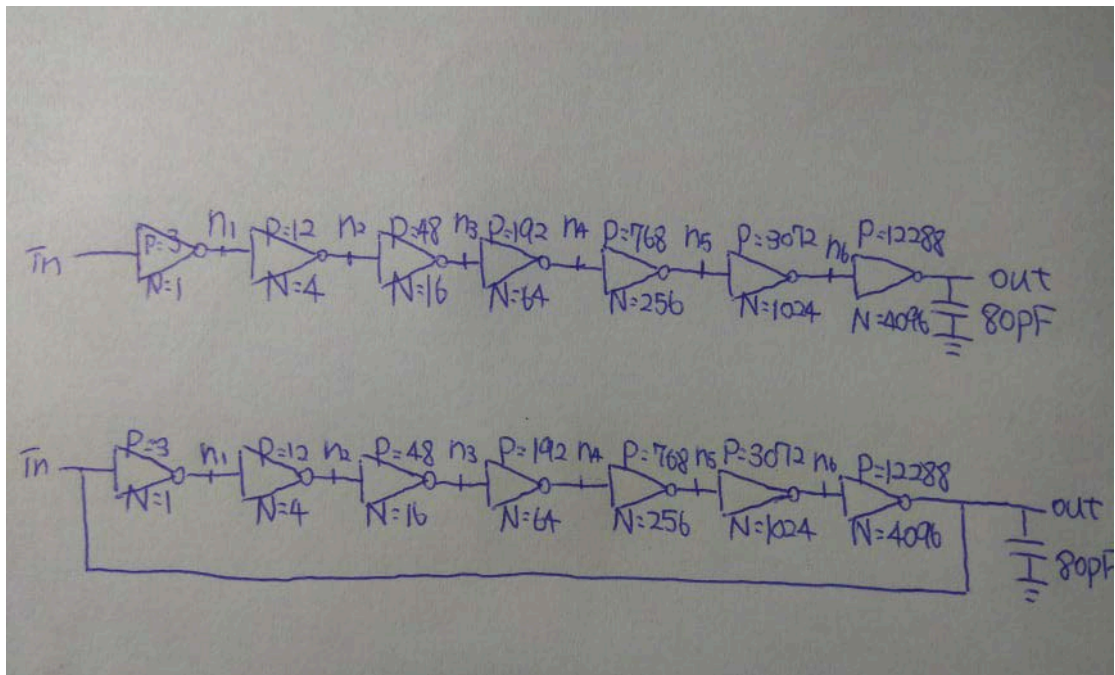 in P=3 N=1 n1 P=12 N=4 n2 P=48 N=16 n3 P=192 N=64 n4 P=768 N=256 n5 P=3072 N=1024 n6 P=12288 N=4096 out 80pF
in P=3 N=1 n1 P=12 N=4 n2 P=48 N=16 n3 P=192 N=64 n4 P=768 N=256 n5 P=3072 N=1024 n6 P=12288 N=4096 out 80pF